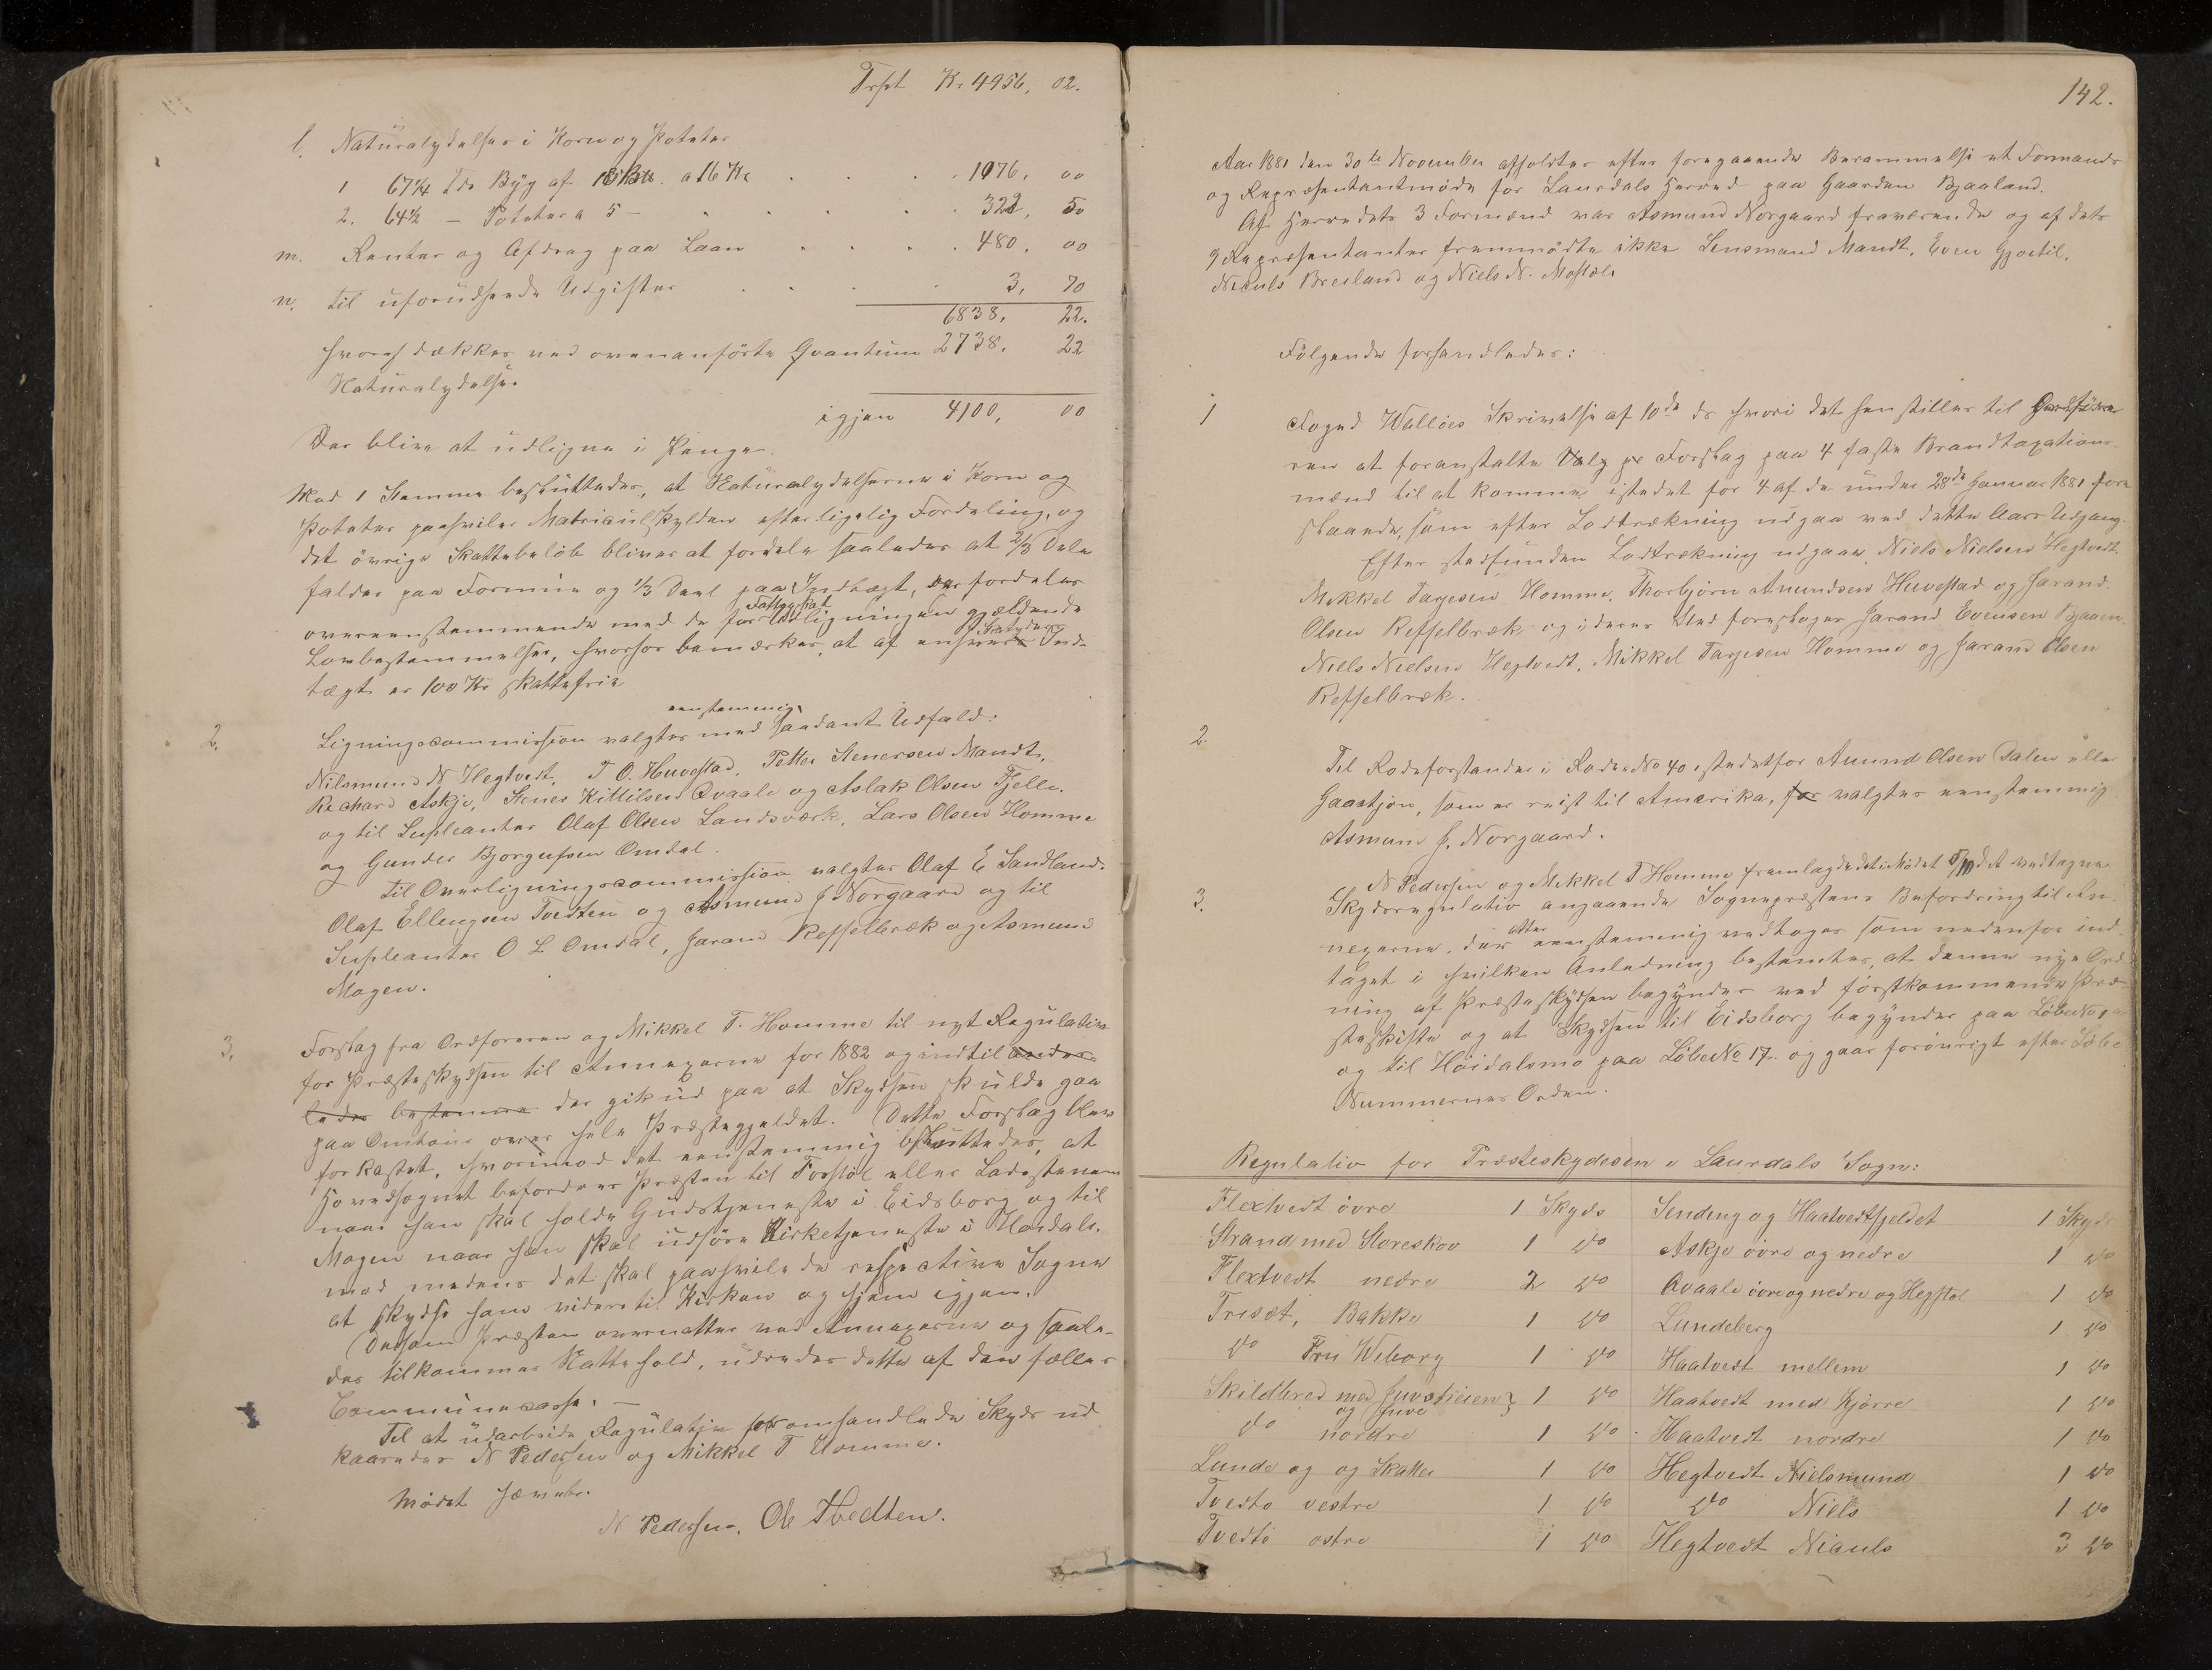 Trspt Kr 4956, 02.
l. Naturalydelser i Korn og Poteter
1 67¼ Tdr Byg af a 16 Kr 1076, 00
2. 64½ — Poteter a 5 — 322, 50
m. Renter og Afdrag paa Laan 480, 00
n. til uforudseede Udgifter 3, 70
6838, 22.
hvoraf dækkes ved ovenanførte Qvantum 2738, 22
Naturalydelse.
igjen 4100, 00
Der blive at udligne i Penge.
Mod 1 Stemme besluttedes, at Naturalydelserne i Korn og
Poteter paahviler Matriculskylden efter ligelig Fordeling, og
det övrige Skattebeløb bliver at fordele saaledes at 2/3 Dele
falder paa Formue og 1/3 Deel paa Indtægt, der fordeles
overeensstemmende med de for Fattigskat Udligningen gjældende
Lovbestemmelser, hvorfor bemærkes, at af enhver Skatyders Ind-
tægt er 100 Kr skattefrie
2. Ligningscommission valgtes eenstemmig med saadant Udfald:
Nilsmund N Hegtvedt, T O. Huvestad, Petter Stenersen Mandt,
Richard Askje, Stener Kittilsen Qvaale og Aslak Olsen Fjelle.
og til Supleanter Olaf Olsen Landsværk, Lars Olsen Homme
og Gunder Bjorgufsen Omdal.
Til Overligningscommission valgtes Olaf E Sandland.
Olaf Ellingsen Tvedten og Asmund J Norgaard og til
Supleanter O L Omdal, Jarand Reffelbræk og Asmund
Mogen.
3. Forslag fra Ordføreren og Mikkel T. Homme til nyt Regulativ
for Præsteskydsen til Annexerne for 1882 og indtil ander-
ledes bestemme der gik ud paa at Skydsen skulde gaa
paa Omtour over hele Præstegjeldet. Dette Forslag blev
forkastet, hvorimod det eenstemmig besluttedes, at
Hovedsognet befordrer Præsten til Forstöl eller Ladestenen
naar han skal holde Gudstjeneste i Eidsborg og til
Mogen naar han skal udføre Kirketjeneste i Høidals-
mo medens det skal paahvile de respective Sogne
at skydse ham videre til Kirken og hjem igjen.
Dersom Præsten overnatter ved Annexerne og saale-
des tilkommer Nattehold, udredes dette af den fælles
Communecasse. —
Til at udarbeide Regulativ for omhandlede Skyds ud-
kaaredes N Pedersen og Mikkel T Homme.
Mødet hævedes.
N Pedersen. Ole Tvedten.
142.
Aar 1881 den 30te November afholdtes efter foregaaende Berammelse et Formands
og Repræsentantmøde for Laurdals Herred paa Gaarden Bjaaland.
Af Herredets 3 Formænd var Asmund Norgaard fraværende og af dets
9 Repræsentanter fremmødte ikke Lensmand Mandt, Even Gjøtil,
Niculs Breiland og Niels N. Mostøl.
Følgende forhandledes:
1 Foged Walløes Skrivelse af 10de ds hvori det henstilles til Ordføre-
ren at foranstalte Valg pe Forslag paa 4 faste Brandtaxations-
mænd til at komme istedet for 4 af de under 28de Januar 1881 fore-
slaaede, som efter Lodtrækning udgaa ved dette Aars Udgang.
Efter stedfunden Lodtrækning udgaar Niels Nielsen Hegtvedt
Mikkel Tarjesen Homme, Thorbjørn Amundsen Huvestad og Jarand
Olsen Reffelbræk og i deres Sted foreslages Jarand Evensen Bjaaen,
Niels Nielsen Hegtvedt, Mikkel Tarjesen Homme og Jarand Olsen
Reffelbræk.
2. Til Rodeforstander i Rode No 40 istedetfor Amund Olsen Dalen eller
Gaastjøn, som er reist til Amerika, for valgtes eenstemmig
Asmund J. Norgaard.
3. N Pedersen og Mikkel T Homme fremlagde det i Mødet det vedtagne
Skydsregulativ angaaende Sognepræstens Befordring til An-
nexerne, der atter eenstemmig vedtoges som nedenfor ind-
taget i hvilken Anledning bestemtes, at denne nye Ord-
ning af Præsteskydsen begynder ved førstkommende Præ-
steskifte og at Skydsen til Eidsborg begynder paa Løbe No
og til Høidalsmo paa Løbe No 17. og gaar forøvrigt efter Løbe
Nummernes Orden.
Regulativ for Præsteskydsen i Laurdals Sogn:
Flextvedt övre 1 Skyds Sending og Haatvedtfjeldet 1 Skyds
Strand med Storeskov 1 do Askje övre og nedre 1 do
Flextvedt nedre 2 do Qvaale övre og nedre og Hegstöl 1 do
Trisæt, Bakke 1 do Lundeberg 1 do
do Fru Wiborg 1 do Haatvedt mellem 1 do
Skildbred med Juvstteien og Juve 1 do Haatvedt med Kjörre 1 do
do nordre 1 do Haatvedt nordre 1 do
Lunde og og Skatter 1 do Hegtvedt Nielsmund 1 do
Tvedto vestre 1 do do Niels 1 do
Tvedto ostre 1 do Hegtvedt Niculs 3 do